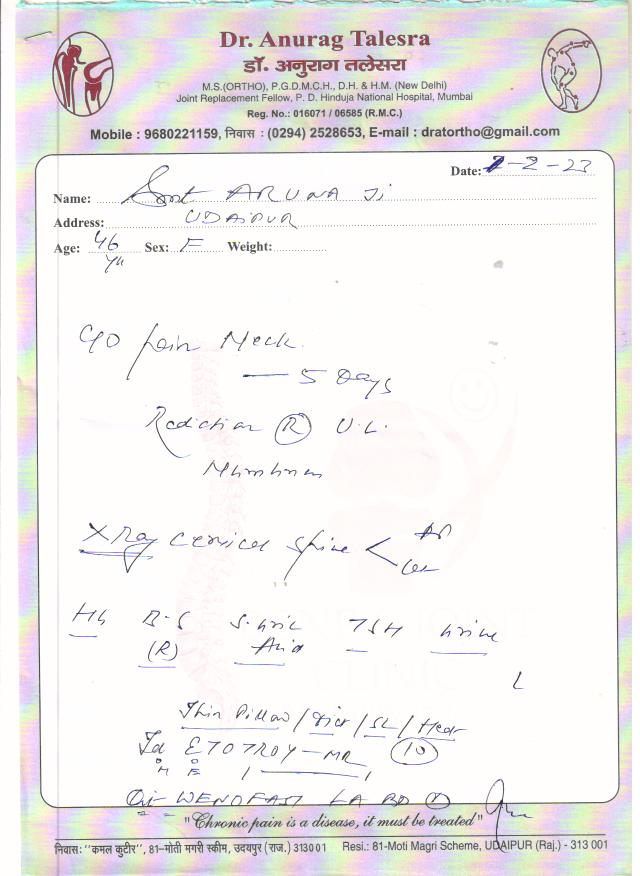 Dr. Anurag Talesra
डॉ. अनुराग तलेसरा
M.S.(ORTHO), P.G.D.M.C.H., D.H. & H.M. (New Delhi)
Joint Replacement Fellow, P. D. Hinduja National Hospital, Mumbai
Reg. No.: 016071 / 06585 (R.M.C.)
Mobile : 9680221159, निवास : (0294) 2528653, E-mail : dratortho@gmail.com
Date: 1-2-23
Name: Smt ARUNA Ji
Address: UDAIPUR
Age: 46 Sex: F Weight:
yrs
C/O pain Neck
— 5 Days
Radiation (R) U.L.
Numbness
X Ray cervical spine < AP
Lat
Hb B-S S. Uric TSH Urine
(R) Acid
Thin Pillow / Diet / SL / Heat
ETOTROY-MR (10)
1 — 1
WENOFAST LA BD (1)
"Chronic pain is a disease, it must be treated"
निवास: "कमल कुटीर", 81-मोती मगरी स्कीम, उदयपुर (राज.) 313001 Resi.: 81-Moti Magri Scheme, UDAIPUR (Raj.) - 313 001